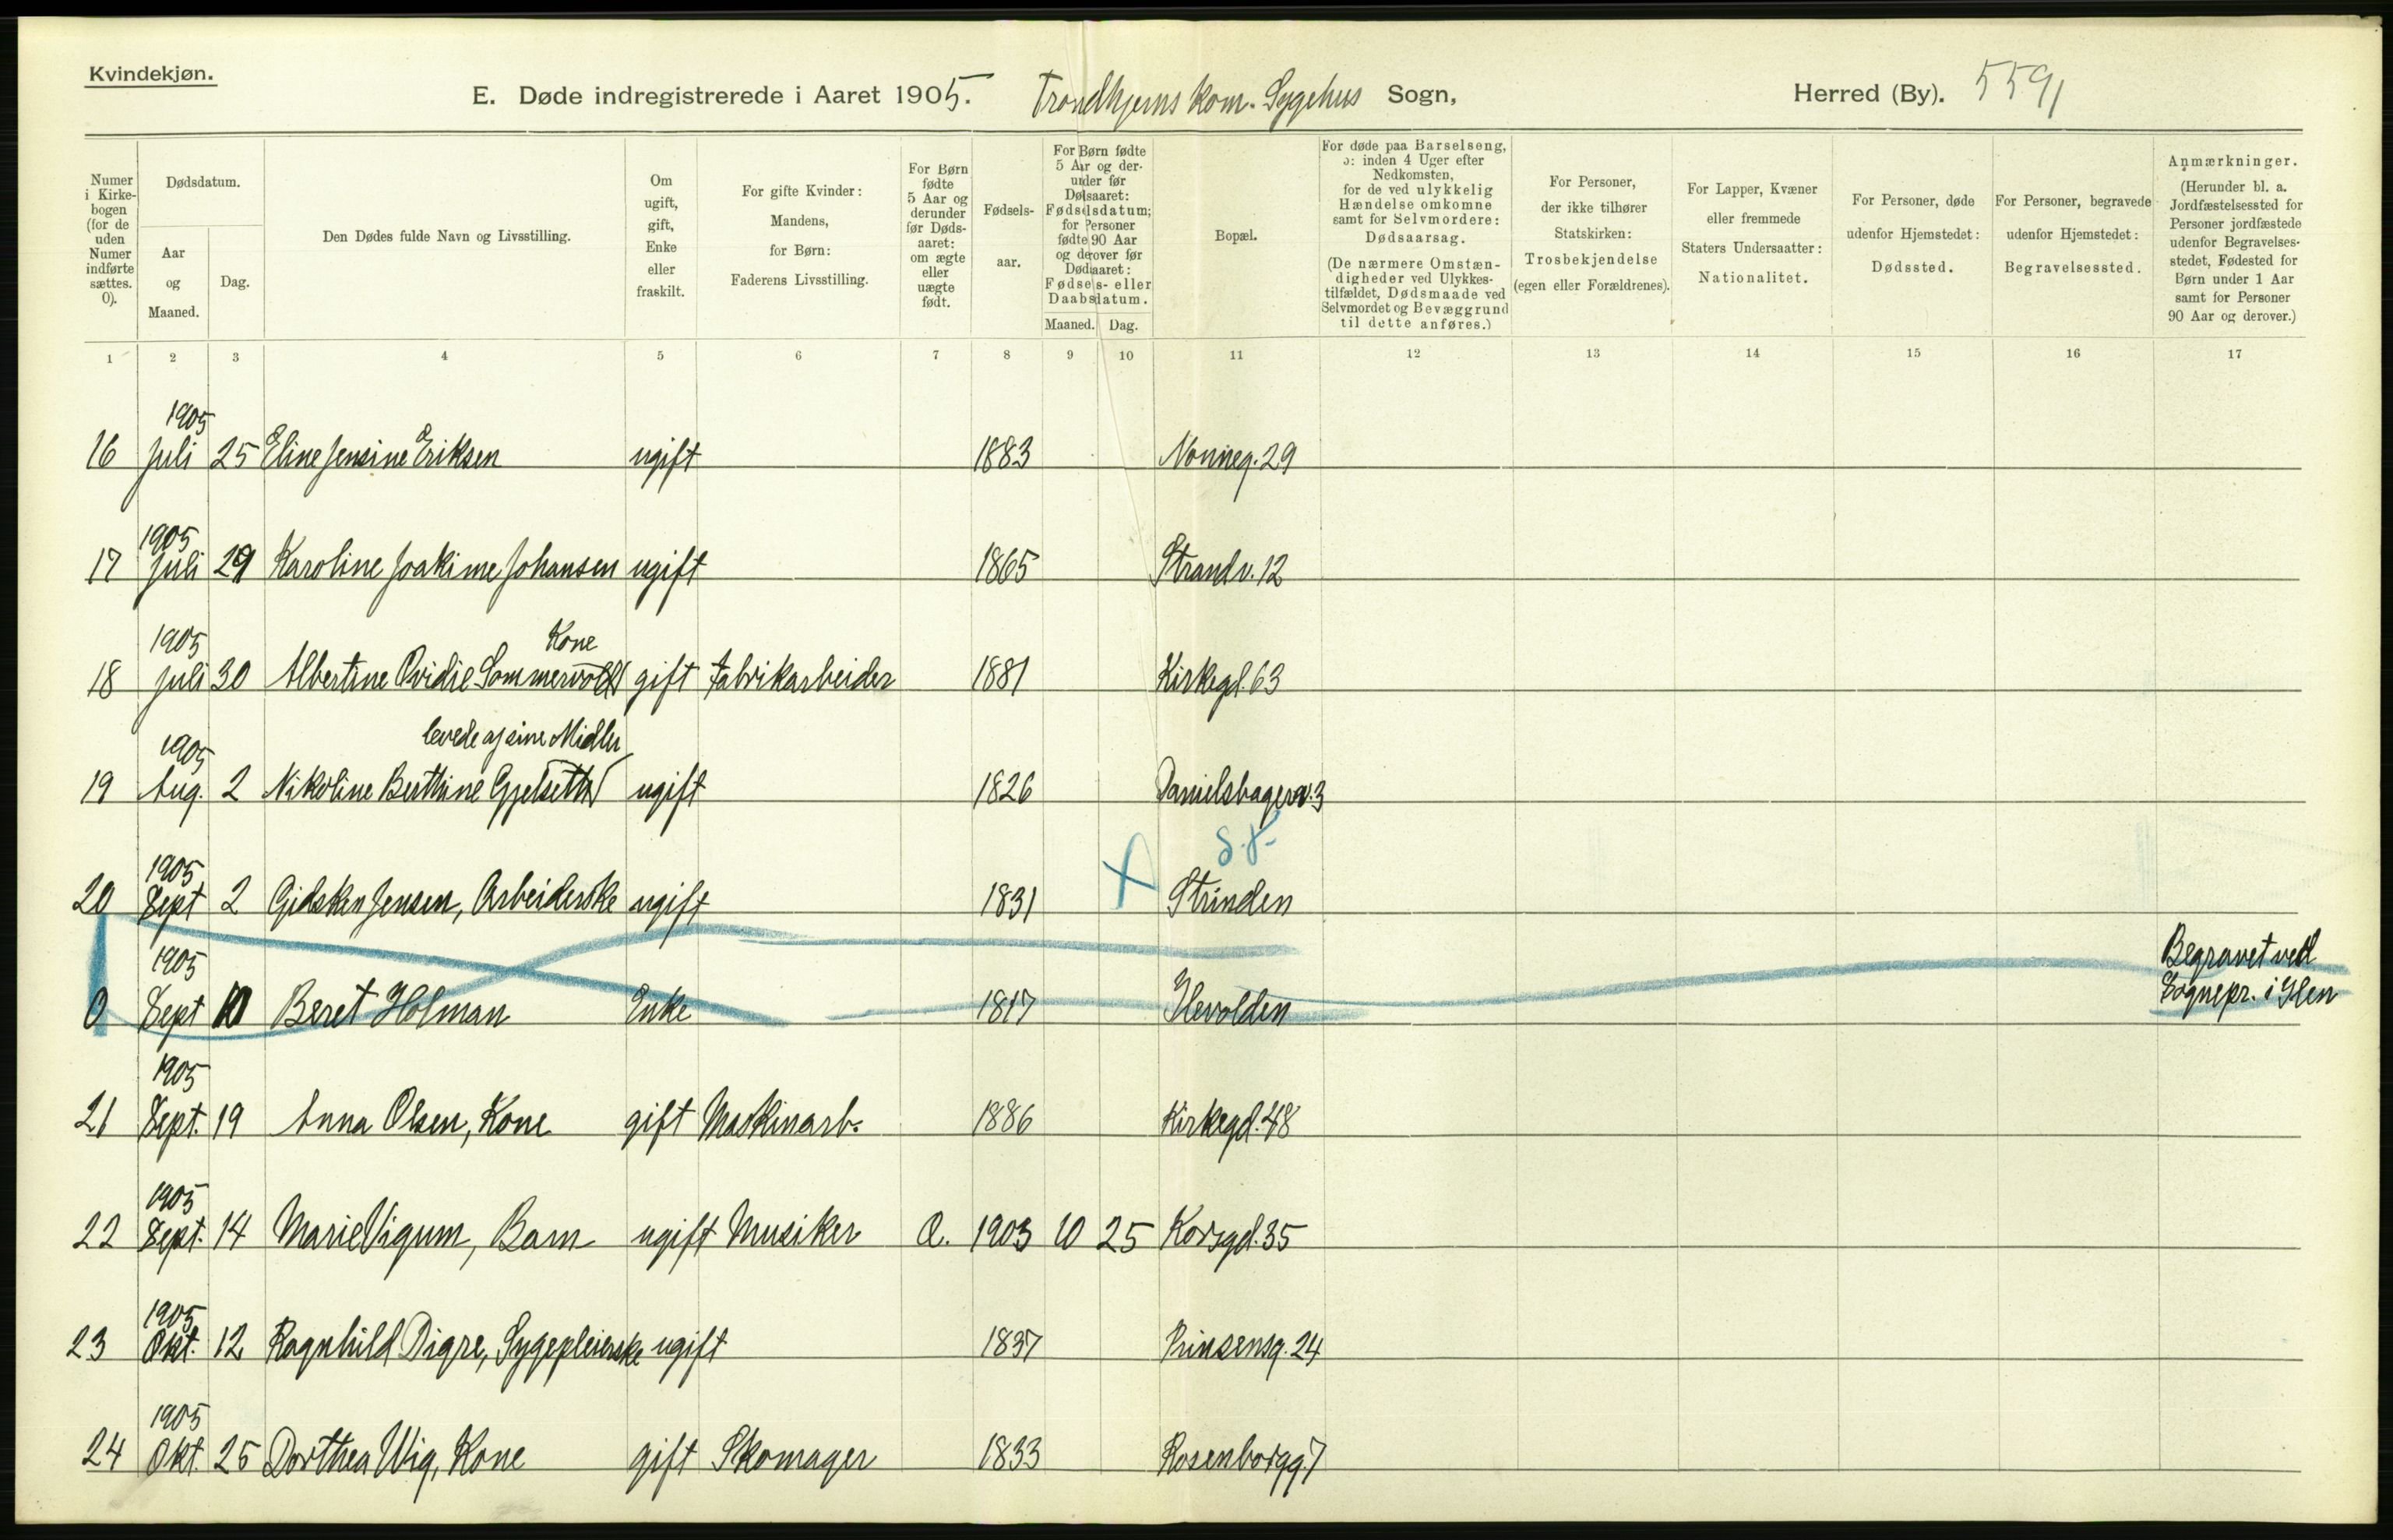 Kvindekjøn.
E. Døde indregistrerede i Aaret 1905. Trondhjems kom. Sygehus Sogn, Herred (By). 559,
Numer i Kirkebogen (for de uden Numer indførte sættes. 0).
Dødsdatum.
Aar og Maaned.
Dag.
Den Dødes fulde Navn og Livsstilling.
Om ugift, gift, Enke eller fraskilt.
For gifte Kvinder: Mandens, for Børn: Faderens Livsstilling.
For Børn fødte 5 Aar og derunder før Dødsaaret: om ægte eller uægte født.
Fødselsaar.
For Børn fødte 5 Aar og derunder før Dødsaaret: Fødselsdatum; for Personer fødte 90 Aar og derover før Dødsaaret: Fødsels- eller Daabsdatum.
Maaned. Dag.
Bopæl.
For døde paa Barselseng, ɔ: inden 4 Uger efter Nedkomsten, for de ved ulykkelig Hændelse omkomne samt for Selvmordere: Dødsaarsag.
(De nærmere Omstændigheder ved Ulykkestilfældet, Dødsmaade ved Selvmordet og Bevæggrund til dette anføres.)
For Personer, der ikke tilhører Statskirken: Trosbekjendelse (egen eller Forældrenes).
For Lapper, Kvæner eller fremmede Staters Undersaatter: Nationalitet.
For Personer, døde udenfor Hjemstedet: Dødssted.
For Personer, begravede udenfor Hjemstedet: Begravelsessted.
Anmærkninger.
(Herunder bl. a. Jordfæstelsessted for Personer jordfæstede udenfor Begravelsesstedet, Fødested for Børn under 1 Aar samt for Personer 90 Aar og derover.)
1 2 3 4 5 6 7 8 9 10 11 12 13 14 15 16 17
1905
16 Juli 25 Eline Jensine Eriksen ugift 1883 Nonneg. 29
1905
17 Juli 29 Karoline Joakime Johansen ugift 1865 Strandv. 12
1905 Kone
18 Juli 30 Albertine Ovidie Sommervold gift Fabrikarbeider 1881 Kirkegd. 63
levede af sine Midler
1905
19 Aug. 2 Nikoline Berthine Gjelseth ugift 1826 Danielsbagerv. 3
1905
20 Sept 2 Gidsken Jensen, Arbeiderske ugift 1831 Strinden
1905 Begravet ved
0 Sept 10 Beret Holman Enke 1817 Ilevolden Sognepr. i Ilen
1905
21 Sept. 19 Anna Olsen, Kone gift Maskinarb. 1886 Kirkegd. 48
1905
22 Sept. 14 Marie Vigum, Barn ugift Musiker 1903 10 25 Korsgd. 35
1905
23 Okt. 12 Ragnhild Digre, Sygepleierske ugift 1837 Prinsensg. 24
1905
24 Okt. 25 Dorthea Wig, Kone gift Skomager 1833 Rosenborgg. 7